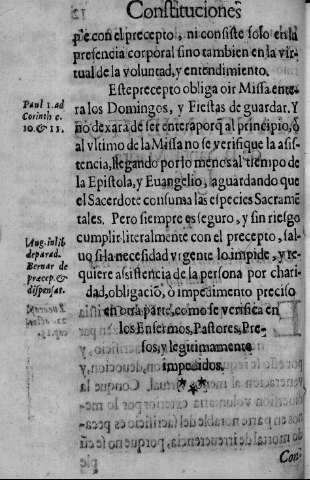 Constituciones
ple con el precepto, ni consiste solo en la
presencia corporal sino tambien en la vir-
tual de la voluntad, y entendimiento.
Este precepto obliga oir Missa ente-
ra los Domingos, y Fiestas de guardar. Y
no dexará de ser entera porq̃ al principio, ò
al vltimo de la Missa no se verifique la asis-
tencia, llegando por lo menos al tiempo de
la Epistola, y Euangelio, aguardando que
el Sacerdote consuma las especies Sacramē
tales. Pero siempre es seguro, y sin riesgo
cumplir literalmente con el precepto, sal-
uo si la necesidad vrgente lo impide, y re-
quiere asistencia de la persona por chari-
dad, obligaciō, ò impedimento preciso
en otra parte, como se verifica en
los Enfermos, Pastores, Pre-
sos, y legitimamente
impedidos.
Paul 1. ad
Corinth c.
10. & 11.
Aug. in lib
de parad.
Bernar de
præcep. &
dispensat.
Con-